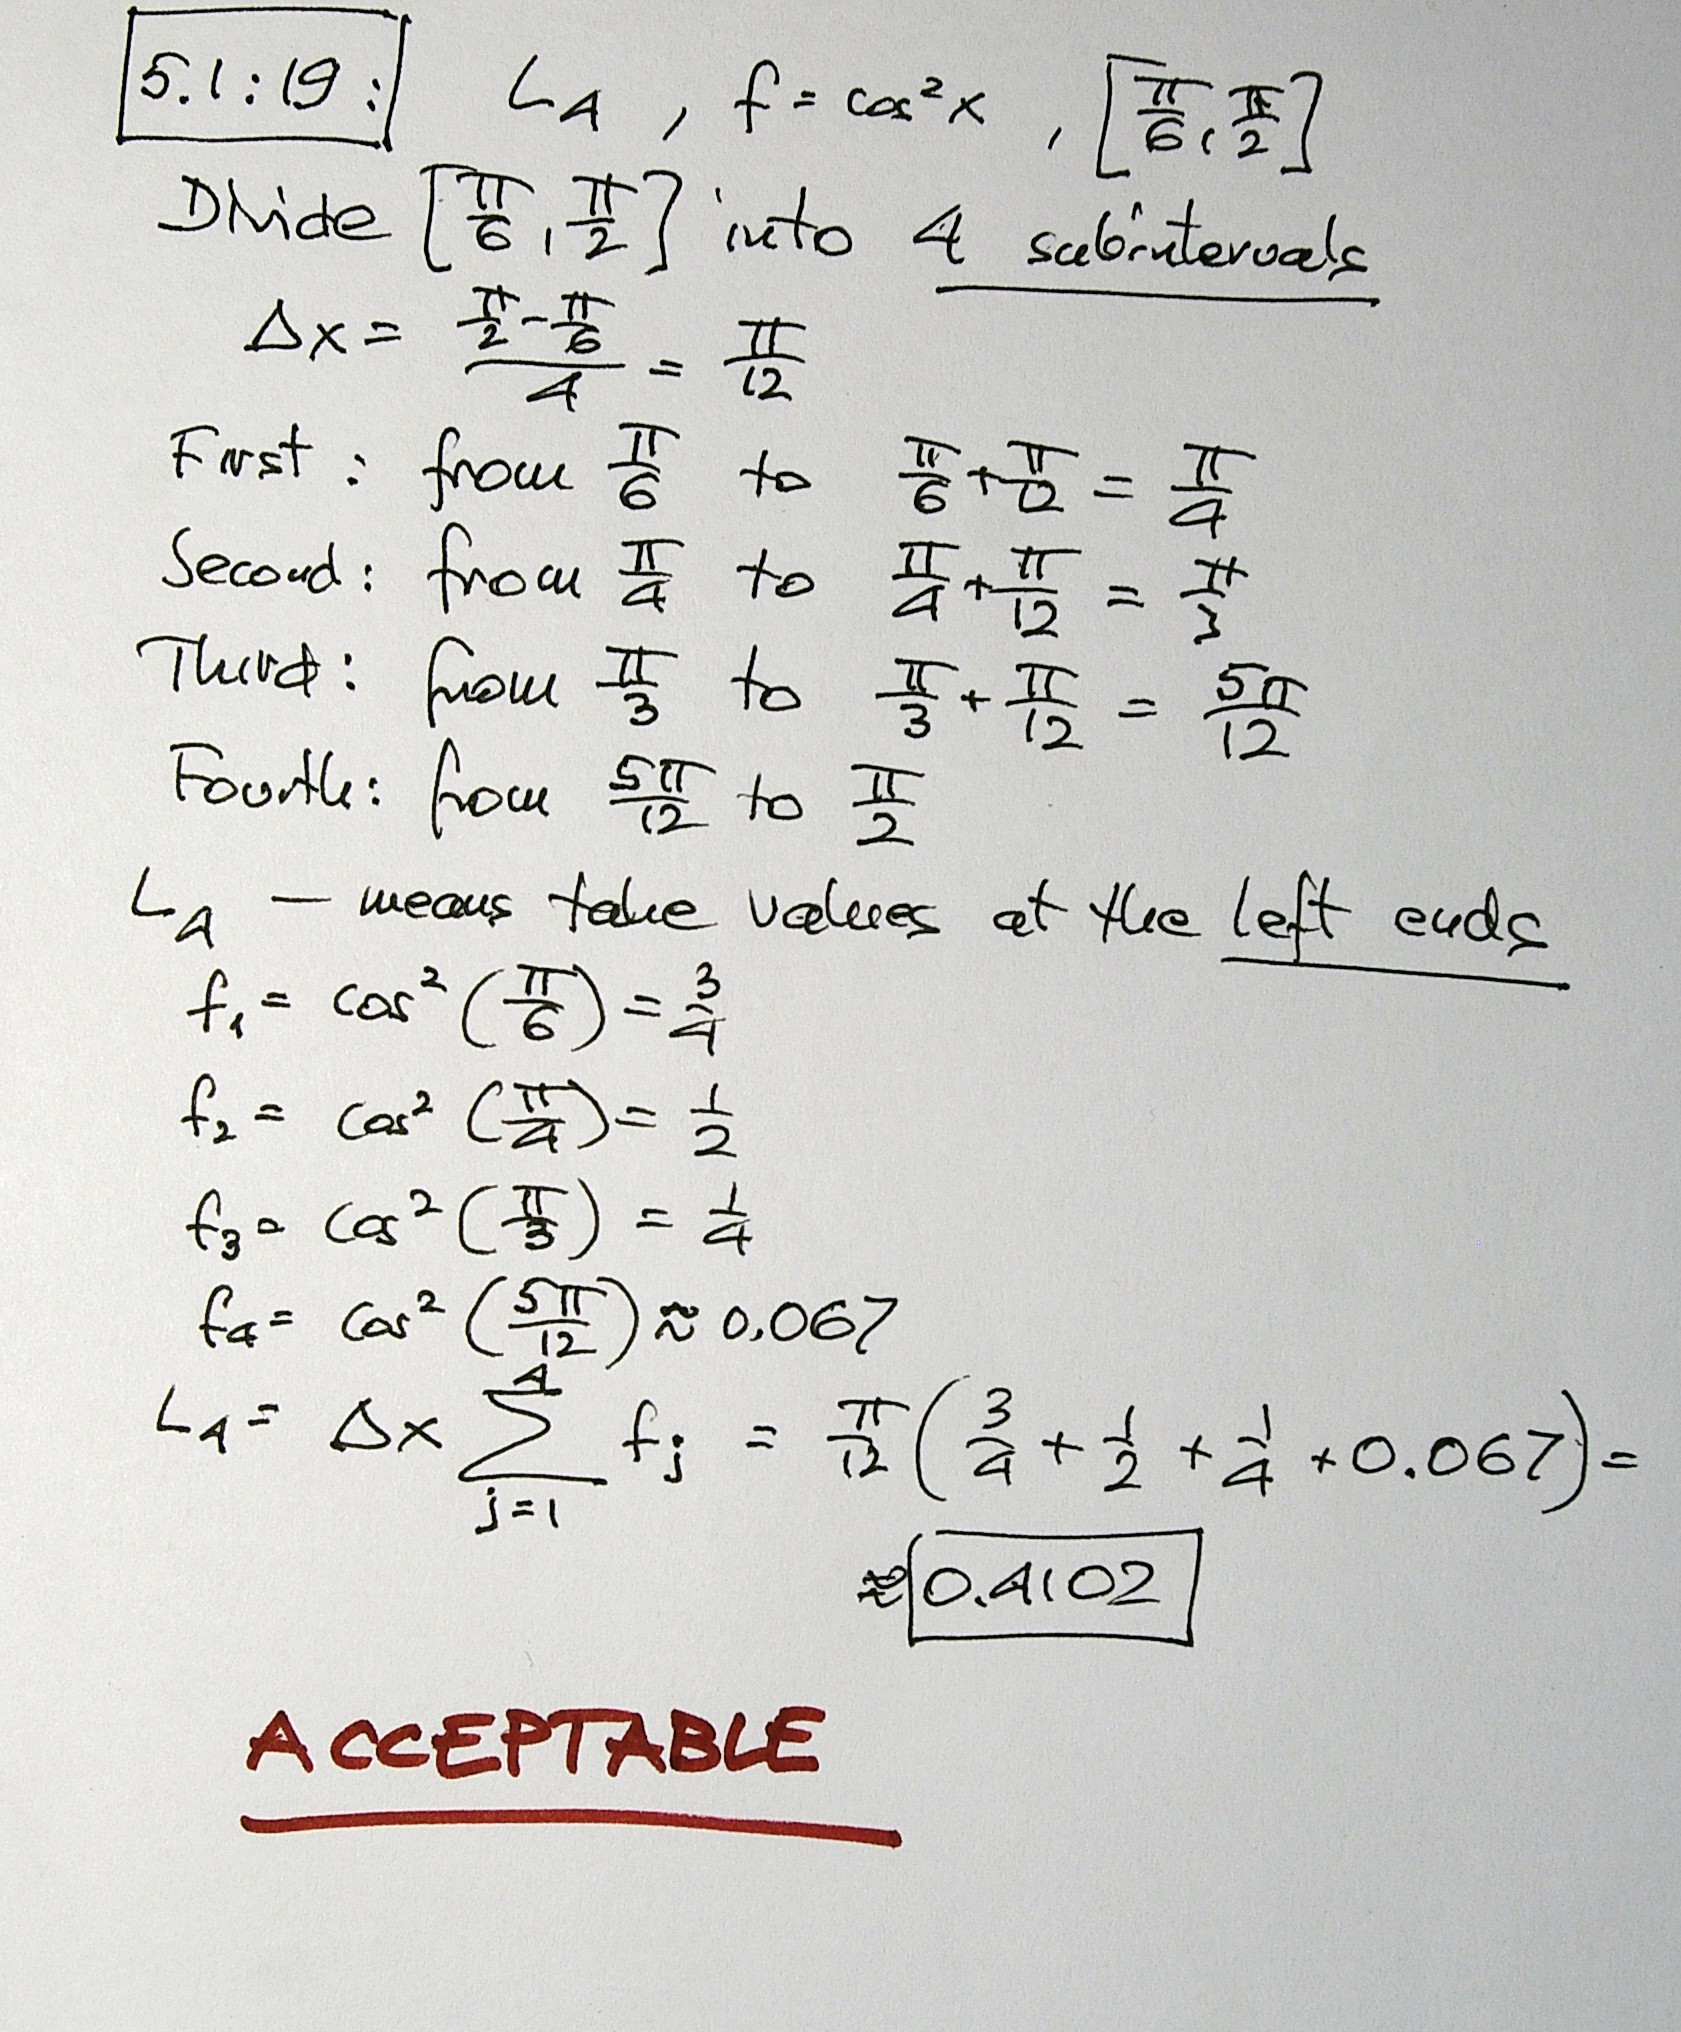 5.1:19: L₄, f = cos²x, [π/6, π/2]
Divide [π/6, π/2] into 4 subintervals
Δx = (π/2 - π/6)/4 = π/12
First: from π/6 to π/6 + π/12 = π/4
Second: from π/4 to π/4 + π/12 = π/3
Third: from π/3 to π/3 + π/12 = 5π/12
Fourth: from 5π/12 to π/2
L₄ — means take values at the left ends
f₁ = cos²(π/6) = 3/4
f₂ = cos²(π/4) = 1/2
f₃ = cos²(π/3) = 1/4
f₄ = cos²(5π/12) ≈ 0.067
L₄ = Δx ∑_{j=1}^{4} f_j = π/12 (3/4 + 1/2 + 1/4 + 0.067) =
≈ 0.4102
ACCEPTABLE